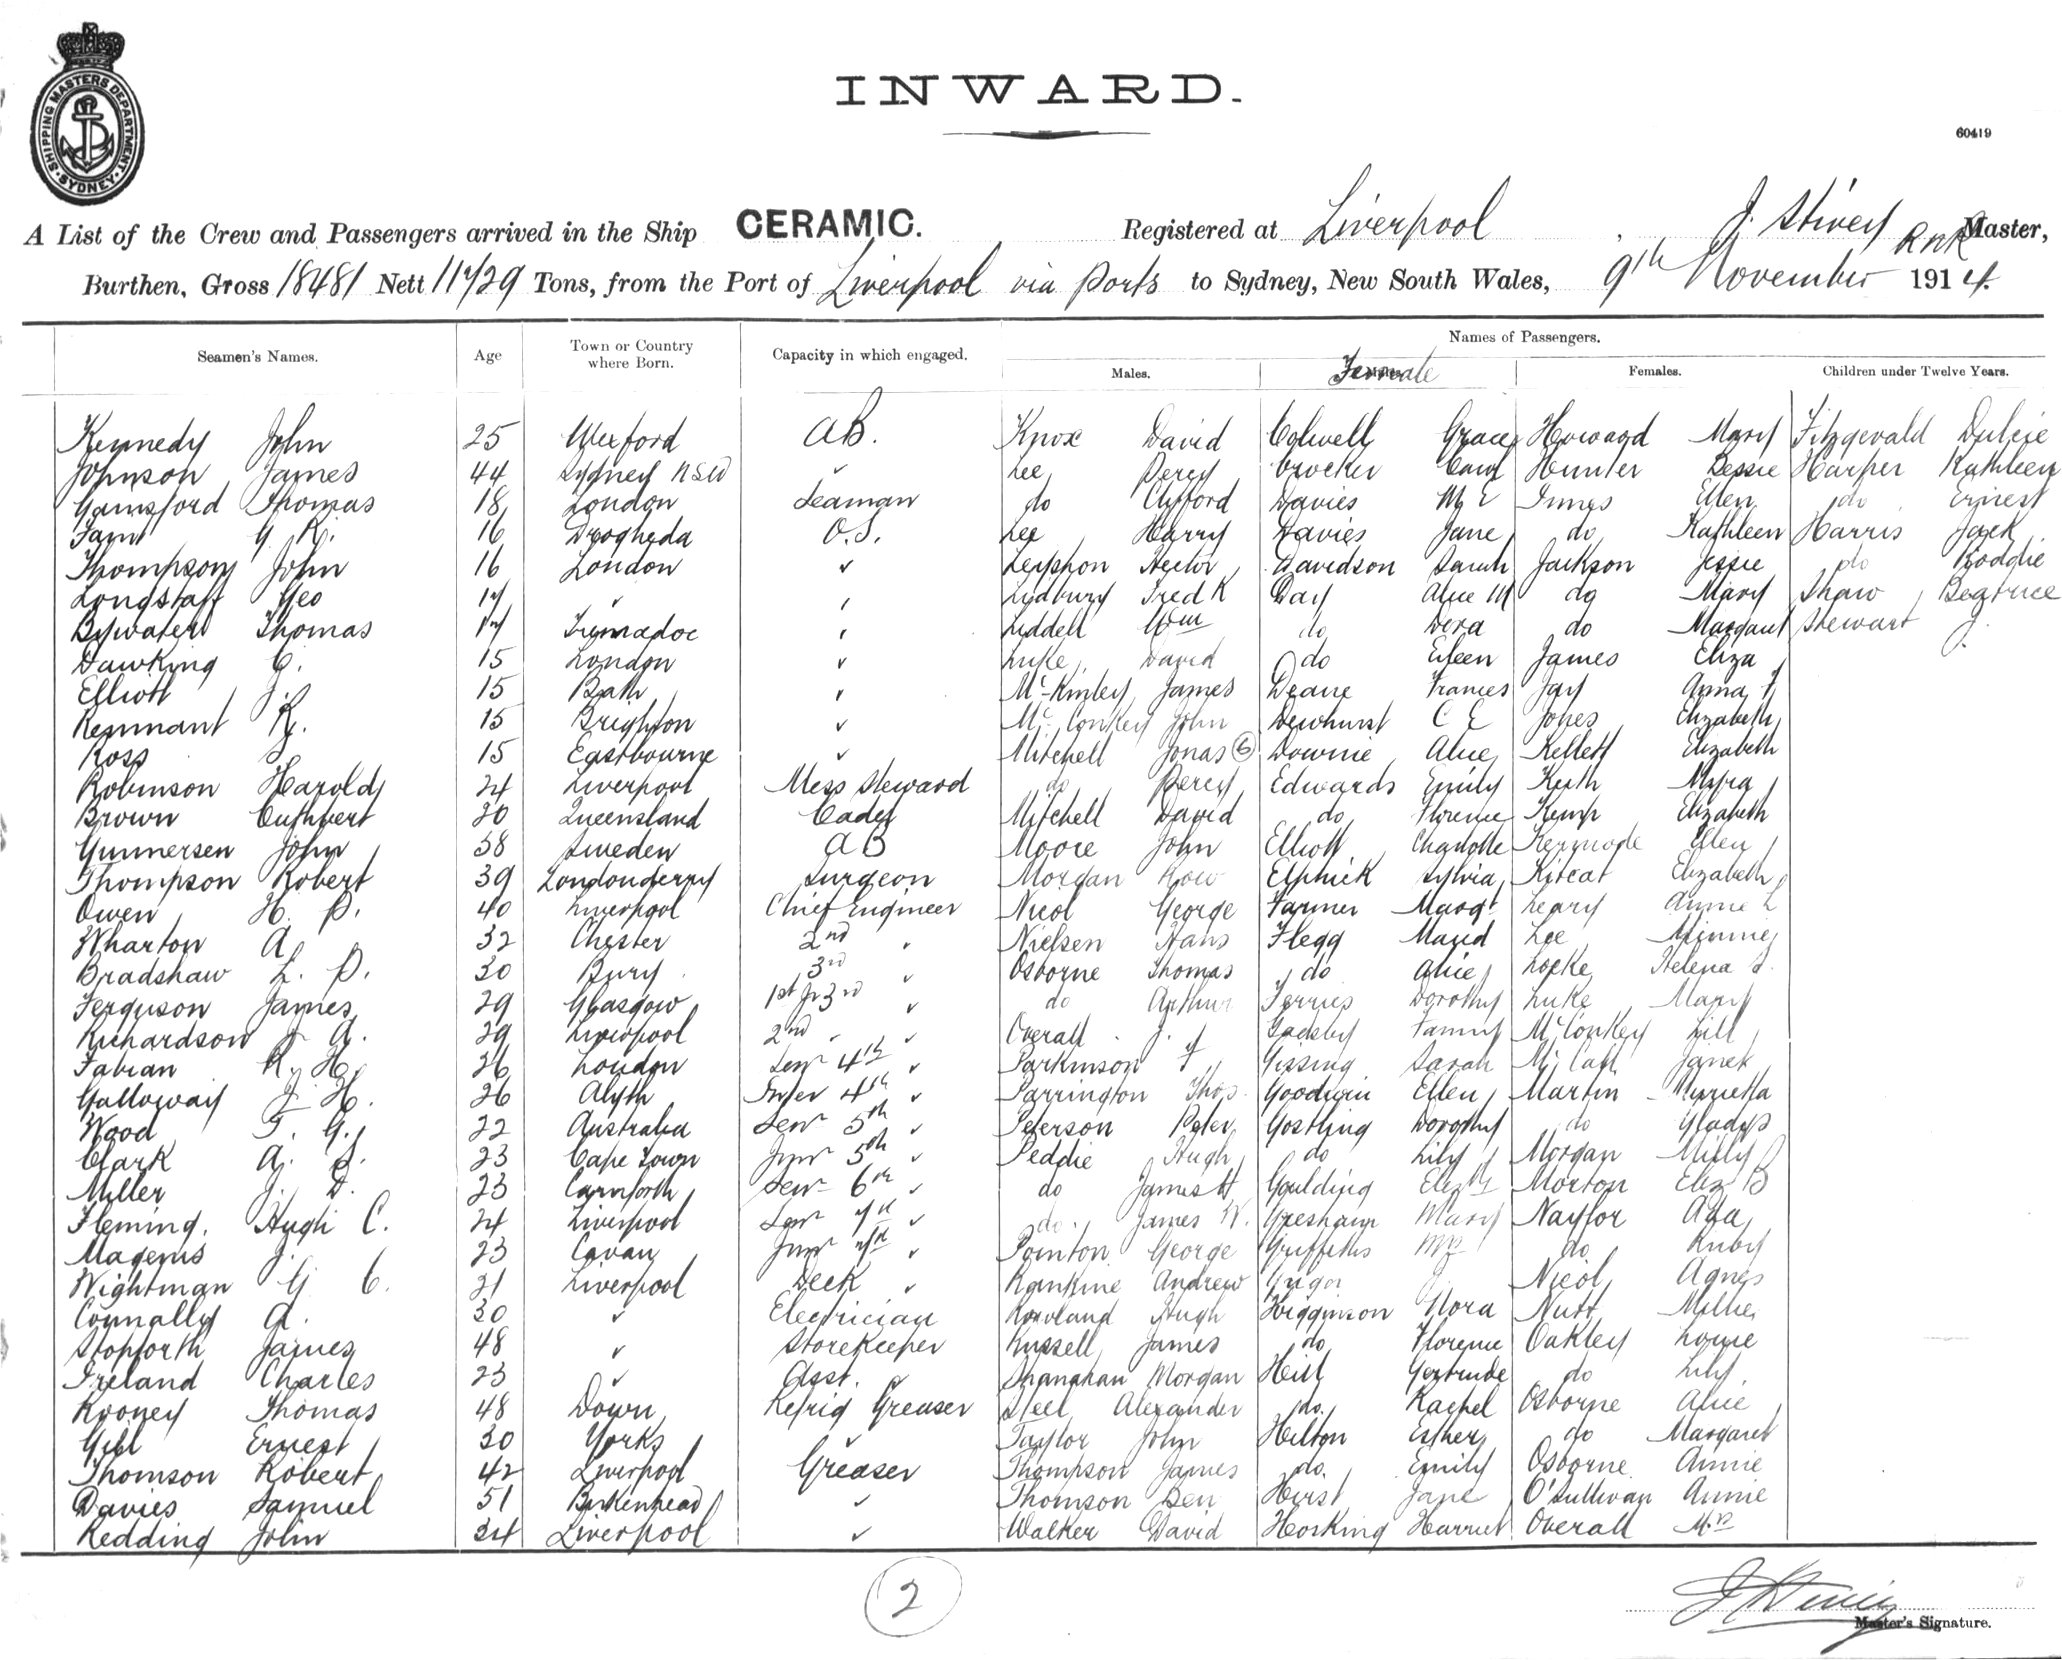 SHIPPING MASTERS DEPARTMENT · SYDNEY ·
INWARD.
60419
A List of the Crew and Passengers arrived in the Ship CERAMIC. Registered at Liverpool J. Stivey RNR Master,
Burthen, Gross 18481 Nett 11729 Tons, from the Port of Liverpool via Ports to Sydney, New South Wales, 9th November 1914.
Names of Passengers.
Seamen's Names. Age Town or Country where Born. Capacity in which engaged. Males. Female Females. Children under Twelve Years.
Kennedy John 25 Wexford A.B. Knox David Colwell Grace Howard Mary Fitzgerald Dulcie
Johnson James 44 Sydney NSW ✓ Lee Percy Crocker Hunter Bessie Harper Kathleen
Gainsford Thomas 18 London Seaman do Clifford Davies M E Innes Ellen do Ernest
G. R. 16 Drogheda O.S. Lee Harry Davies Jane do Kathleen Harris Jack
Thompson John 16 London ✓ Hector Davidson Sarah Jackson Jessie do Roddie
Longstaff Geo 17 ✓ Lydbury Fred K Day Alice M do Mary Shaw Beatrice
Bywater Thomas 17 Tremadoc Liddell Wm do Dora do Margaret Stewart J.
Dawking C. 15 London ✓ Luke David do Eileen James Eliza
Elliott J. 15 Bath McKinley James Deane Frances Jay Anna F
Remnant R. 15 Brighton ✓ McConkey John Dewhurst C E Jones Elizabeth
Ross 15 Eastbourne ✓ Mitchell Jonas 6 Downie Alice Kellett Elizabeth
Robinson Harold 24 Liverpool Mess Steward do Percy Edwards Emily Keith Myra
Brown Cuthbert 20 Queensland Cadet Mitchell David do Florence Kemp Elizabeth
Gunnersen John 58 Sweden AB Moore John Elliott Charlotte Kermode Ellen
Thompson Robert 39 Londonderry Surgeon Morgan Row Elphick Sylvia Kitcat Elizabeth
Owen H. P. 40 Liverpool Chief Engineer Nicol George Farmer Margt Leary Annie L
Wharton A. 32 Chester 2nd Nielsen Hans Flegg Maud Lee Minnie
Bradshaw L. P. 30 Bury 3rd ✓ Osborne Thomas do Alice Locke Helena S.
Ferguson James 29 Glasgow 1st Jr 3rd ✓ do Arthur Ferries Dorothy Luke Mary
Richardson J. A. 29 Liverpool 2nd ✓ Overall J. Gadsby Fanny McConkey Lill
Fabian R. H. 26 London Senr 4th ✓ Parkinson F Gissing Sarah McCall Janet
Galloway J. H. 26 Alyth Inter 4th ✓ Parrington Thos. Goodwin Ellen Martin Murietta
Wood F. G. 22 Australia Senr 5th ✓ Peterson Peter Gostling Dorothy do Gladys
Clark A. S. 23 Cape Town Junr 5th ✓ Peddie Hugh do Lily Morgan Milly
Miller J. D. 23 Carnforth Senr 6th ✓ do James H Goulding Elizth Morton Eliz B
Fleming. Hugh C. 24 Liverpool Senr 7th ✓ do. James W. Gresham Mary Naylor Ada
Magenis J. 23 Cavan Junr 7th ✓ Pointon George Griffiths Mrs do Ruby
Wightman G C. 21 Liverpool Deck ✓ Rankine Andrew Grigor J. Nicol Agnes
Connally A. 30 ✓ Electrician Rowland Hugh Higginson Nora Nutt Millie
Stopforth James 48 ✓ Storekeeper Russell James do Florence Oakley Louie
Ireland Charles 23 ✓ Asst. ✓ Shanahan Morgan Heill Gertrude do Lily
Rooney Thomas 48 Down Refrig Greaser Steel Alexander do. Rachel Osborne Alice
Gill Ernest 30 Yorks ✓ Taylor John Hilton Esther do Margaret
Thomson Robert 42 Liverpool Greaser Thompson James do. Emily Osborne Annie
Davies Samuel 51 Birkenhead ✓ Thomson Ben Hirst Jane O'Sullivan Annie
Redding John 34 Liverpool ✓ Walker David Hosking Harriet Overall Mrs
2
J Stivey
Master's Signature.